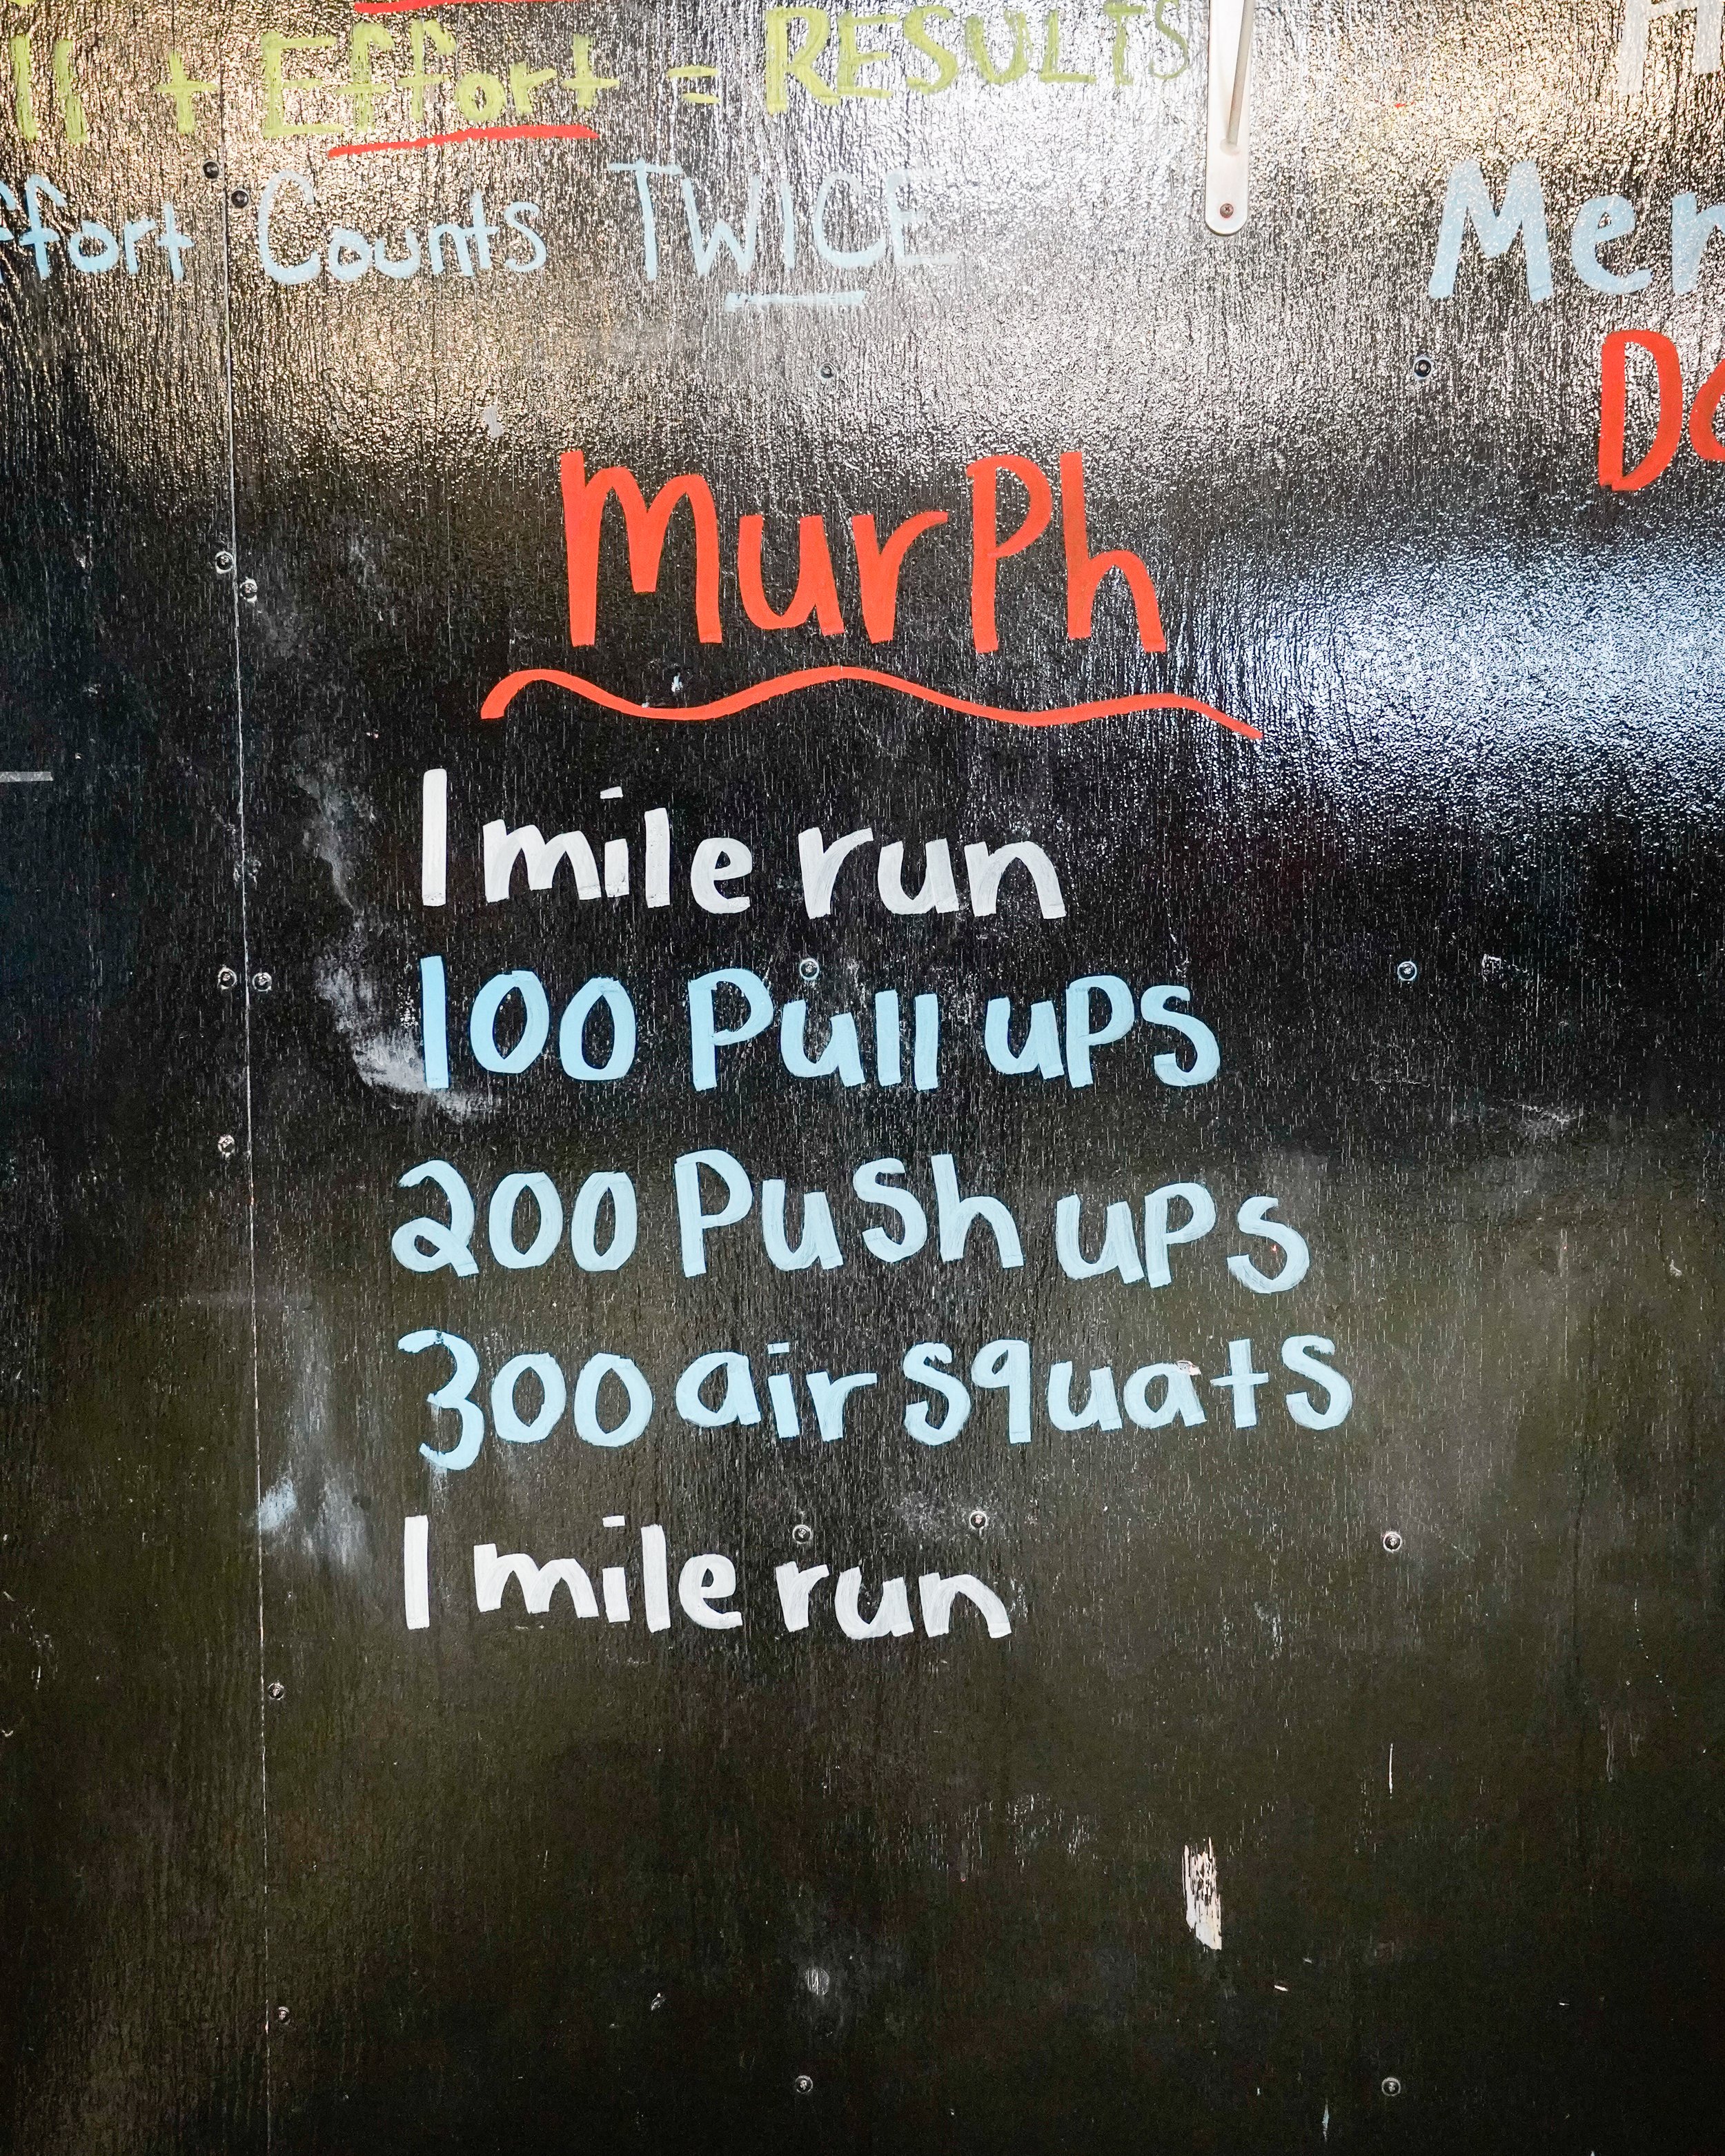 + Effort = RESULTS
Effort Counts TWICE
MurPh
1 mile run
100 Pull ups
200 Push ups
300 air squats
1 mile run